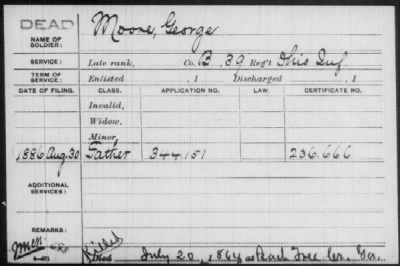 DEAD
Moore, George
NAME OF SOLDIER:
SERVICE: Late rank, Co. B, 39 Reg't Ohio Inf
TERM OF SERVICE: Enlisted , 1 Discharged , 1
DATE OF FILING. CLASS. APPLICATION NO. LAW. CERTIFICATE NO.
Invalid,
Widow,
Minor,
1886 Aug. 30 Father 344.151 236.666
ADDITIONAL SERVICES:
REMARKS:
Killed
Died July 20, 1864, at Peach Tree Cr. Ga.